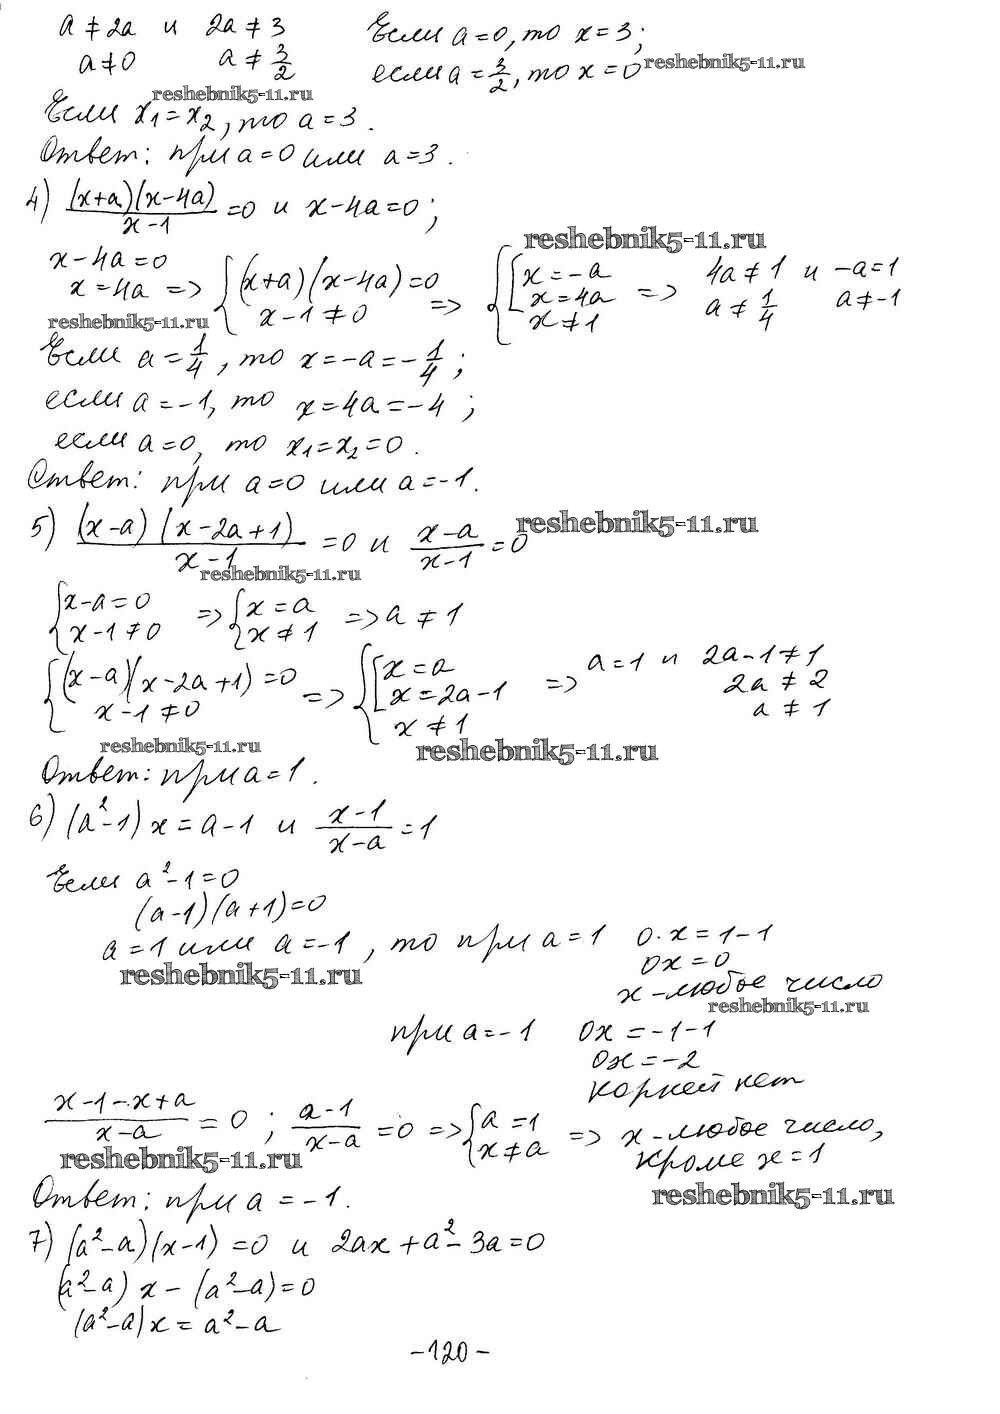 a ≠ 2a и 2a ≠ 3 Если a = 0, то x = 3;
a ≠ 0 a ≠ 3/2 если a = 3/2, то x = 0 reshebnik5-11.ru
reshebnik5-11.ru
Если x₁ = x₂, то a = 3.
Ответ: при a = 0 или a = 3.
4) (x+a)(x-4a)/(x-1) = 0 и x-4a = 0;
reshebnik5-11.ru
x-4a = 0
x = 4a => {(x+a)(x-4a) = 0; x-1 ≠ 0 => {[x = -a; x = 4a; x ≠ 1 => 4a ≠ 1 и -a = 1
a ≠ 1/4 a ≠ -1
reshebnik5-11.ru
Если a = 1/4, то x = -a = -1/4;
если a = -1, то x = 4a = -4;
если a = 0, то x₁ = x₂ = 0.
Ответ: при a = 0 или a = -1.
5) (x-a)(x-2a+1)/(x-1) = 0 и (x-a)/(x-1) = 0
reshebnik5-11.ru
reshebnik5-11.ru
{x-a = 0; x-1 ≠ 0 => {x = a; x ≠ 1 => a ≠ 1
{(x-a)(x-2a+1) = 0; x-1 ≠ 0 => {[x = a; x = 2a-1; x ≠ 1 => a = 1 и 2a-1 ≠ 1
2a ≠ 2
a ≠ 1
reshebnik5-11.ru
reshebnik5-11.ru
Ответ: при a = 1.
6) (a²-1)x = a-1 и (x-1)/(x-a) = 1
Если a²-1 = 0
(a-1)(a+1) = 0
a = 1 или a = -1, то при a = 1 0·x = 1-1
0x = 0
reshebnik5-11.ru
x - любое число
reshebnik5-11.ru
при a = -1 0x = -1-1
0x = -2
корней нет
(x-1-x+a)/(x-a) = 0; (a-1)/(x-a) = 0 => {a = 1; x ≠ a => x - любое число,
кроме x = 1
reshebnik5-11.ru
Ответ: при a = -1.
reshebnik5-11.ru
7) (a²-a)(x-1) = 0 и 2ax+a²-3a = 0
(a²-a)x-(a²-a) = 0
(a²-a)x = a²-a
-120-